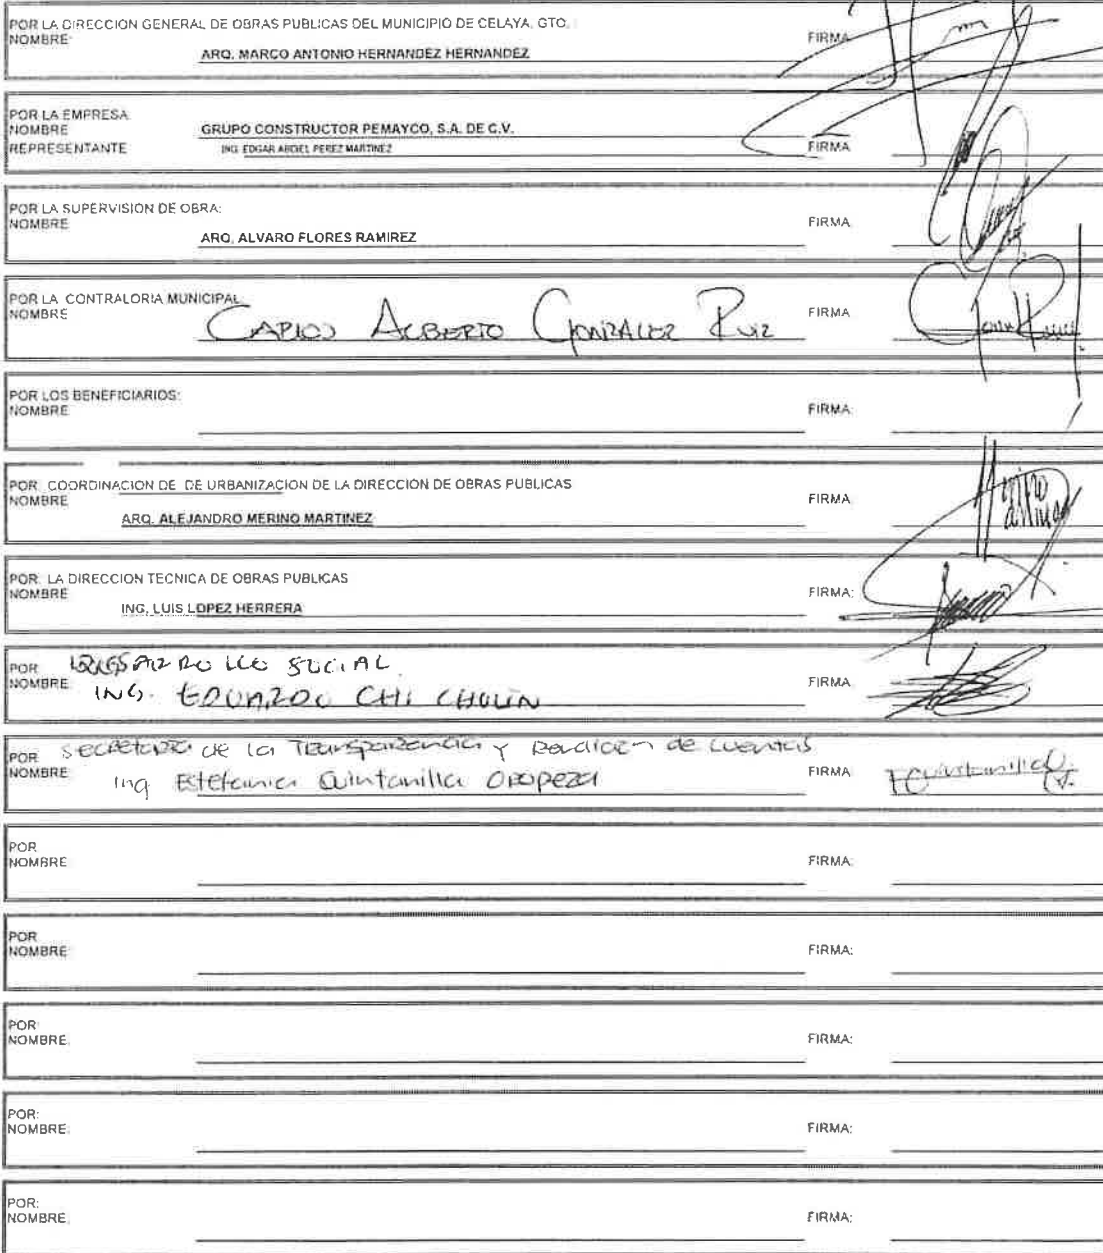 POR LA DIRECCION GENERAL DE OBRAS PUBLICAS DEL MUNICIPIO DE CELAYA, GTO.
NOMBRE:
ARQ. MARCO ANTONIO HERNANDEZ HERNANDEZ
FIRMA
POR LA EMPRESA
NOMBRE
GRUPO CONSTRUCTOR PEMAYCO, S.A. DE C.V.
REPRESENTANTE
ING. EDGAR ABDIEL PEREZ MARTINEZ
FIRMA
POR LA SUPERVISION DE OBRA:
NOMBRE
ARQ. ALVARO FLORES RAMIREZ
FIRMA
POR LA CONTRALORIA MUNICIPAL
NOMBRE
CARLOS ALBERTO GONZALEZ RUIZ
FIRMA
POR LOS BENEFICIARIOS:
NOMBRE
FIRMA:
POR COORDINACION DE DE URBANIZACION DE LA DIRECCION DE OBRAS PUBLICAS
NOMBRE
ARQ. ALEJANDRO MERINO MARTINEZ
FIRMA
POR LA DIRECCION TECNICA DE OBRAS PUBLICAS
NOMBRE
ING. LUIS LOPEZ HERRERA
FIRMA:
POR DESARROLLO SOCIAL
NOMBRE: ING. EDUARDO CHI CHULIN
FIRMA
POR Secretaria de la Transparencia y Rendicion de cuentas
NOMBRE Ing Estefania Quintanilla Oropeza
FIRMA
POR
NOMBRE
FIRMA:
POR
NOMBRE
FIRMA:
POR
NOMBRE:
FIRMA:
POR:
NOMBRE:
FIRMA:
POR:
NOMBRE:
FIRMA: